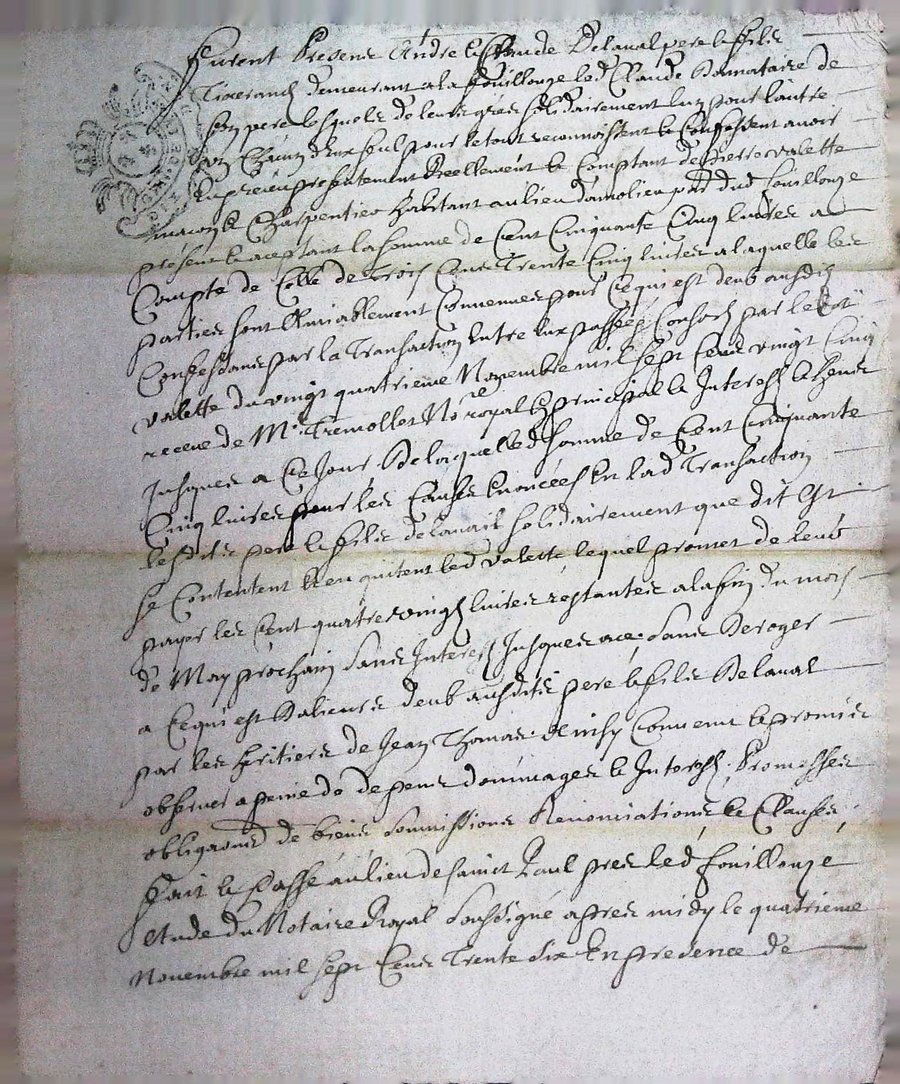 furent Presens André & Claude Delaval pere & fils
Tixerands demeurant a la fouillouze led Claude donnataire de
son pere lesquels de leurs grés solidairement l'un pour l'autre
un chacun d'eux seul pour le tout reconnoissent & Confessent avoir
reçu présentement Réellement & Comptant de pierre valette
Charpentier habitant au lieu par dud fouillouze
présent & aceptant la somme de Cent Cinquante Cinq livres a
Compte de Celle de trois Cens Trente Cinq livres a laquelle les
parties sont amiablement Convenues pour Ce qui est deub ausdits
Confessans par la Transaction Entre eux passée par led
valette du vingt quatrieme Novembre mil sept Cens vingt Cinq
receue de Me Tremollet Nore royal En principal & Interests & despens
Jusques a Ce Jour De laquelle d somme de Cent Cinquante
Cinq livres pour les Causes Enoncées En lad Transaction
lesdits pere & fils delaval solidairement que dit Est
se Contentent & en quitent led valette lequel promet de leur
payer les Cent quatre vingt livres restantes a la fin du mois
de May prochain sans Interest Jusques a ce, sans Deroger
a Ce qui est D'alieurs deub ausdits pere & fils Delaval
par les heritiers de Jean Thomas ainsy Convenu & promis
observer a peine de depens dommages & Interests, Promesses
obligaons de biens soumissions Renonciations & Clauses,
fait & Passé au lieu de sainct Paul pres led fouillouze
etude du Notaire Royal soussigné apres midy le quatrieme
Novembre mil sept Cens Trente six En presence de